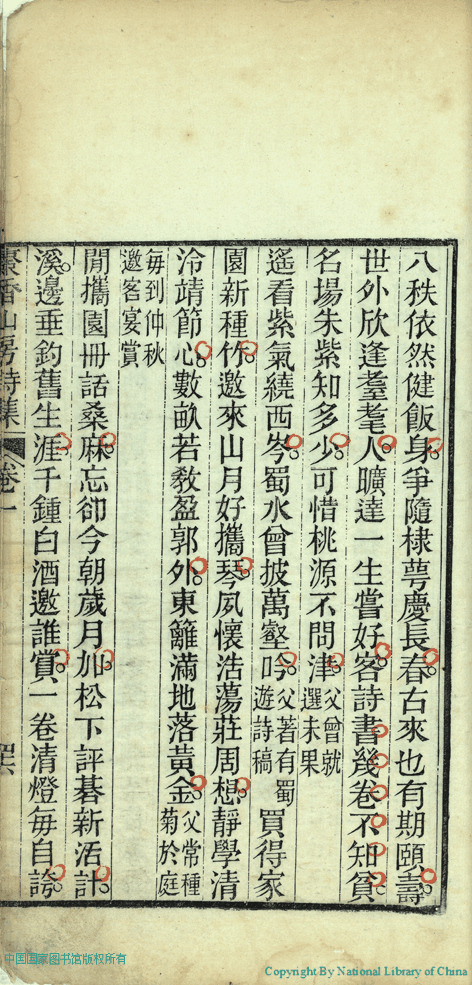 八秩依然健飯身爭隨棣萼慶長春古來也有期頤壽
世外欣逢耋耄人曠達一生嘗好客詩書幾卷不知貧
名場朱紫知多少可惜桃源不問津父曾就選未果
遙看紫氣繞西岑蜀水曾披萬壑吟父著有蜀遊詩稿買得家
園新種竹邀來山月好攜琴夙懷浩蕩莊周想靜學清
泠靖節心數畝若教盈郭外東籬滿地落黃金父常種菊於庭
每到仲秋邀客宴賞
閒攜園冊話桑麻忘卻今朝歲月加松下評碁新活計
溪邊垂釣舊生涯千鍾白酒邀誰賞一卷清燈每自誇
山房詩集 卷一
中国国家图书馆版权所有
Copyright By National Library of China